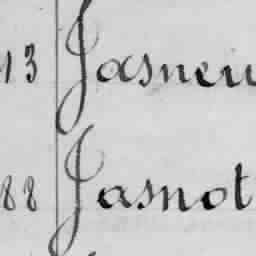 13 Jasneu
88 Jasnot